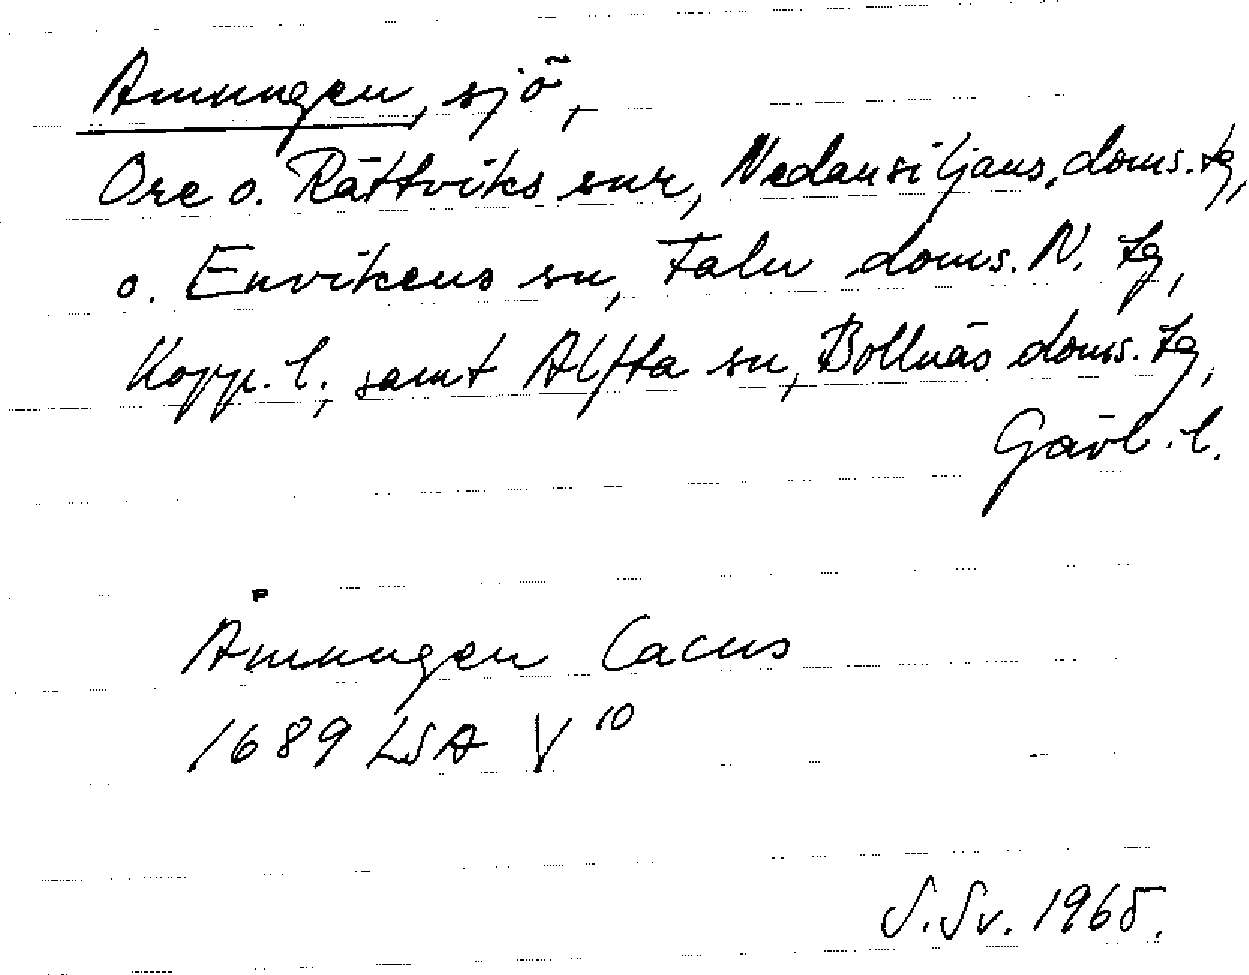 Amungen, sjö,
Ore o. Rättviks snr, Nedansiljans doms. tg,
o. Envikens sn, Falu doms. N. tg,
Kopp. l., samt Alfta sn, Bollnäs doms. tg,
Gävl. l.
Åmungen Lacus
1689 LSA V 10
S. Sv. 1965.